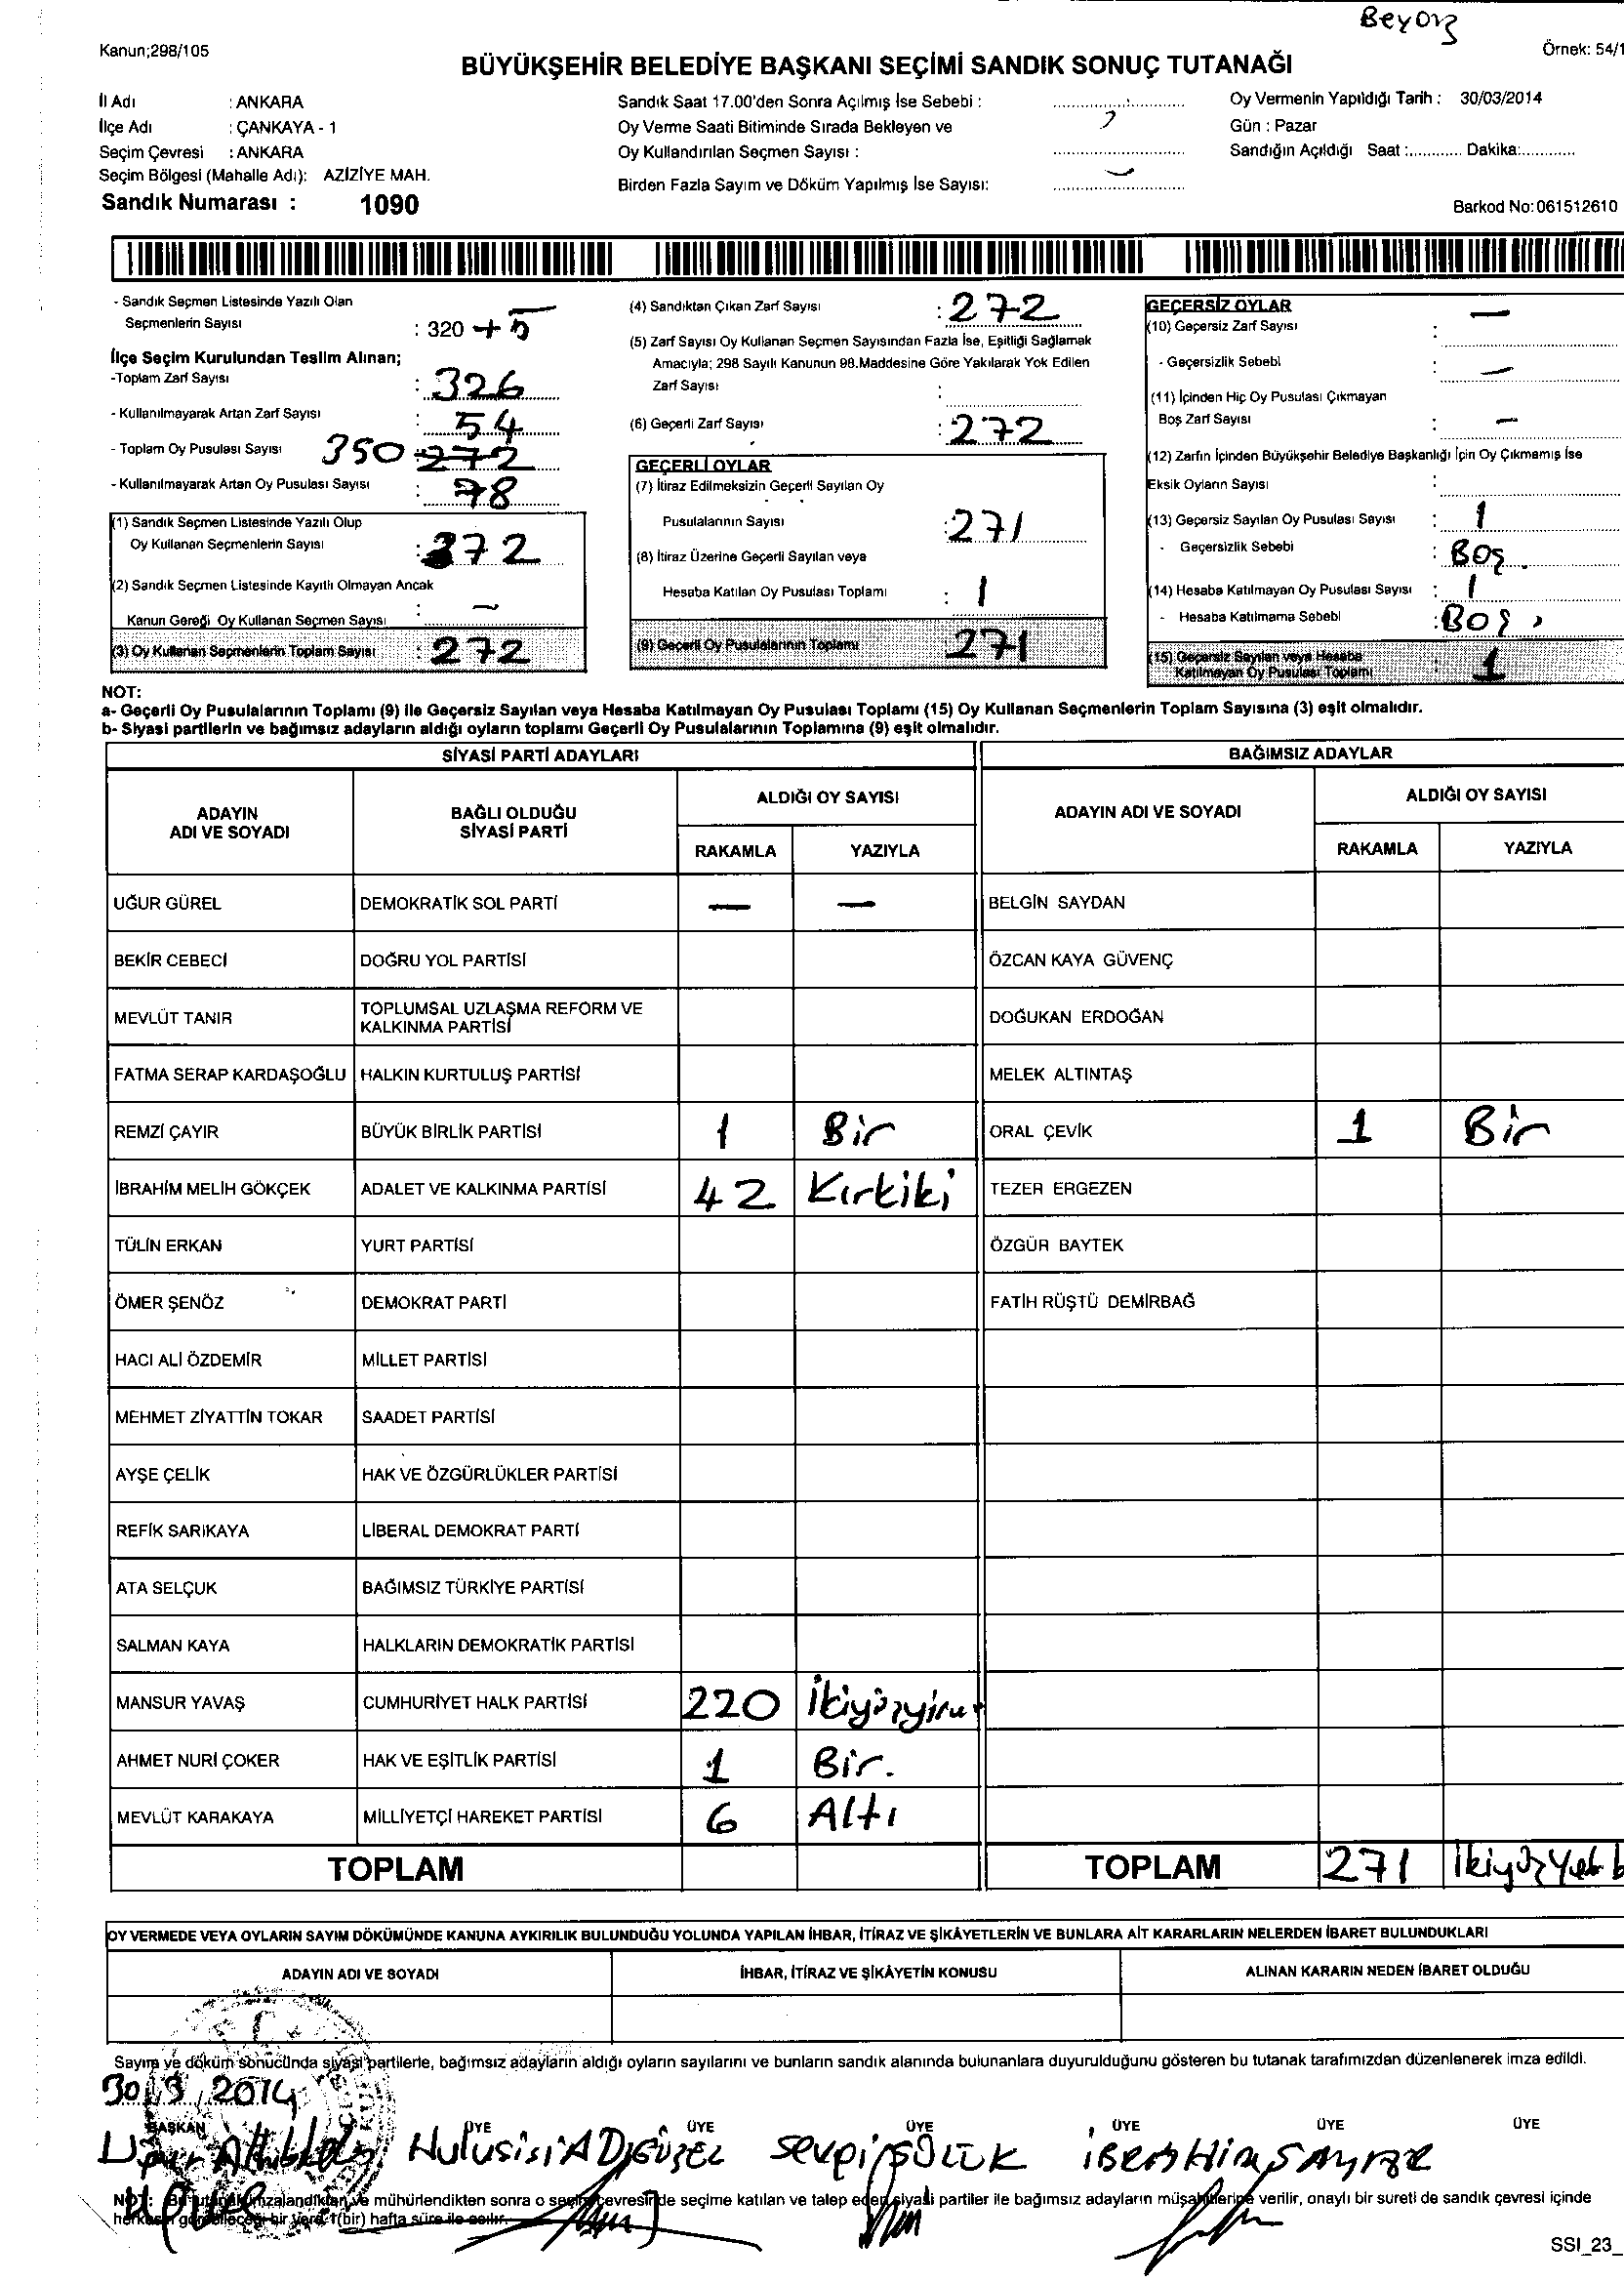 Beyaz
Kanun;298/105
Örnek: 54/1
BÜYÜKŞEHİR BELEDİYE BAŞKANI SEÇİMİ SANDIK SONUÇ TUTANAĞI
İl Adı : ANKARA
İlçe Adı : ÇANKAYA - 1
Seçim Çevresi : ANKARA
Seçim Bölgesi (Mahalle Adı): AZİZİYE MAH.
Sandık Numarası : 1090
Sandık Saat 17.00'den Sonra Açılmış İse Sebebi :
Oy Verme Saati Bitiminde Sırada Bekleyen ve
Oy Kullandırılan Seçmen Sayısı :
Birden Fazla Sayım ve Döküm Yapılmış İse Sayısı:
Oy Vermenin Yapıldığı Tarih : 30/03/2014
Gün : Pazar
Sandığın Açıldığı Saat :............ Dakika:............
Barkod No:061512610
- Sandık Seçmen Listesinde Yazılı Olan
Seçmenlerin Sayısı : 320 + 5
İlçe Seçim Kurulundan Teslim Alınan;
-Toplam Zarf Sayısı : 326
- Kullanılmayarak Artan Zarf Sayısı : 54
- Toplam Oy Pusulası Sayısı 350 : 272
- Kullanılmayarak Artan Oy Pusulası Sayısı : 78
(1) Sandık Seçmen Listesinde Yazılı Olup
Oy Kullanan Seçmenlerin Sayısı : 272
(2) Sandık Seçmen Listesinde Kayıtlı Olmayan Ancak
Kanun Gereği Oy Kullanan Seçmen Sayısı : —
(3) Oy Kullanan Seçmenlerin Toplam Sayısı : 272
(4) Sandıktan Çıkan Zarf Sayısı : 272
(5) Zarf Sayısı Oy Kullanan Seçmen Sayısından Fazla İse, Eşitliği Sağlamak
Amacıyla; 298 Sayılı Kanunun 98.Maddesine Göre Yakılarak Yok Edilen
Zarf Sayısı :
(6) Geçerli Zarf Sayısı : 272
GEÇERLİ OYLAR
(7) İtiraz Edilmeksizin Geçerli Sayılan Oy
Pusulalarının Sayısı : 271
(8) İtiraz Üzerine Geçerli Sayılan veya
Hesaba Katılan Oy Pusulası Toplamı : 1
(9) Geçerli Oy Pusulalarının Toplamı : 271
GEÇERSİZ OYLAR
(10) Geçersiz Zarf Sayısı : —
- Geçersizlik Sebebi : —
(11) İçinden Hiç Oy Pusulası Çıkmayan
Boş Zarf Sayısı : —
(12) Zarfın İçinden Büyükşehir Belediye Başkanlığı İçin Oy Çıkmamış İse
Eksik Oyların Sayısı :
(13) Geçersiz Sayılan Oy Pusulası Sayısı : 1
- Geçersizlik Sebebi : Boş.
(14) Hesaba Katılmayan Oy Pusulası Sayısı : 1
- Hesaba Katılmama Sebebi : Boş
(15) Geçersiz Sayılan veya Hesaba
Katılmayan Oy Pusulası Toplamı : 1
NOT:
a- Geçerli Oy Pusulalarının Toplamı (9) ile Geçersiz Sayılan veya Hesaba Katılmayan Oy Pusulası Toplamı (15) Oy Kullanan Seçmenlerin Toplam Sayısına (3) eşit olmalıdır.
b- Siyasi partilerin ve bağımsız adayların aldığı oyların toplamı Geçerli Oy Pusulalarının Toplamına (9) eşit olmalıdır.
SİYASİ PARTİ ADAYLARI BAĞIMSIZ ADAYLAR
ADAYIN ADI VE SOYADI BAĞLI OLDUĞU SİYASİ PARTİ ALDIĞI OY SAYISI ADAYIN ADI VE SOYADI ALDIĞI OY SAYISI
RAKAMLA YAZIYLA RAKAMLA YAZIYLA
UĞUR GÜREL DEMOKRATİK SOL PARTİ — — BELGİN SAYDAN
BEKİR CEBECİ DOĞRU YOL PARTİSİ ÖZCAN KAYA GÜVENÇ
MEVLÜT TANIR TOPLUMSAL UZLAŞMA REFORM VE KALKINMA PARTİSİ DOĞUKAN ERDOĞAN
FATMA SERAP KARDAŞOĞLU HALKIN KURTULUŞ PARTİSİ MELEK ALTINTAŞ
REMZİ ÇAYIR BÜYÜK BİRLİK PARTİSİ 1 Bir ORAL ÇEVİK 1 Bir
İBRAHİM MELİH GÖKÇEK ADALET VE KALKINMA PARTİSİ 42 Kırkiki TEZER ERGEZEN
TÜLİN ERKAN YURT PARTİSİ ÖZGÜR BAYTEK
ÖMER ŞENÖZ DEMOKRAT PARTİ FATİH RÜŞTÜ DEMİRBAĞ
HACI ALİ ÖZDEMİR MİLLET PARTİSİ
MEHMET ZİYATTİN TOKAR SAADET PARTİSİ
AYŞE ÇELİK HAK VE ÖZGÜRLÜKLER PARTİSİ
REFİK SARIKAYA LİBERAL DEMOKRAT PARTİ
ATA SELÇUK BAĞIMSIZ TÜRKİYE PARTİSİ
SALMAN KAYA HALKLARIN DEMOKRATİK PARTİSİ
MANSUR YAVAŞ CUMHURİYET HALK PARTİSİ 220 İkiyüzyirm
AHMET NURİ ÇOKER HAK VE EŞİTLİK PARTİSİ 1 Bir.
MEVLÜT KARAKAYA MİLLİYETÇİ HAREKET PARTİSİ 6 Altı
TOPLAM TOPLAM 271 İkiyüzYet b
OY VERMEDE VEYA OYLARIN SAYIM DÖKÜMÜNDE KANUNA AYKIRILIK BULUNDUĞU YOLUNDA YAPILAN İHBAR, İTİRAZ VE ŞİKÂYETLERİN VE BUNLARA AİT KARARLARIN NELERDEN İBARET BULUNDUKLARI
ADAYIN ADI VE SOYADI İHBAR, İTİRAZ VE ŞİKÂYETİN KONUSU ALINAN KARARIN NEDEN İBARET OLDUĞU
Sayım ve döküm sonucunda siyasi partilerle, bağımsız adayların aldığı oyların sayılarını ve bunların sandık alanında bulunanlara duyurulduğunu gösteren bu tutanak tarafımızdan düzenlenerek imza edildi.
30/3/2014
BAŞKAN ÜYE ÜYE ÜYE ÜYE ÜYE ÜYE
Hulusi ADIGÜZEL İBRAHİM
NOT: Bu tutanak imzalandıktan ve mühürlendikten sonra o seçim çevresinde seçime katılan ve talep eden siyasi partiler ile bağımsız adayların müşahitlerine verilir, onaylı bir sureti de sandık çevresi içinde
herkesin görebileceği bir yere 1(bir) hafta süre ile asılır.
SSI_23_